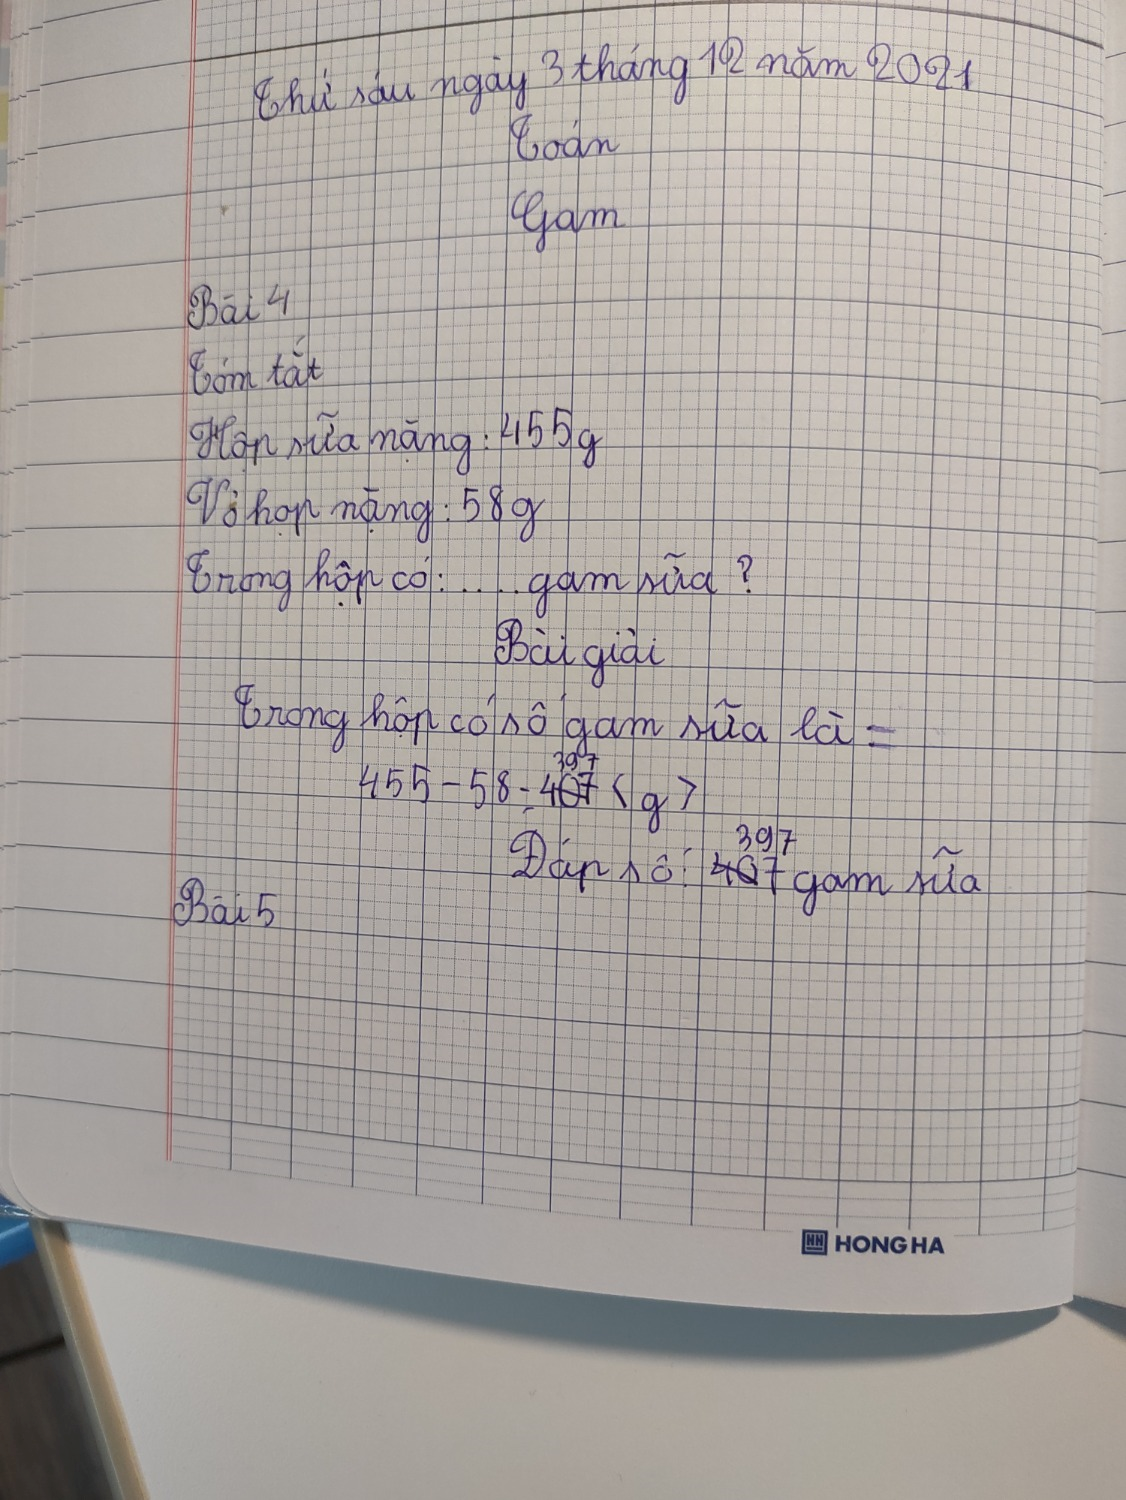 Thứ sáu ngày 3 tháng 12 năm 2021
Toán
Gam
Bài 4
Tóm tắt
Hộp sữa nặng: 455g
Vỏ họp nặng: 58g
Trong hộp có: ..... gam sữa ?
Bài giải
Trong hộp có số gam sữa là =
397
455 - 58 = 407 (g)
397
Đáp số: 407 gam sữa
Bài 5
HH HONG HA